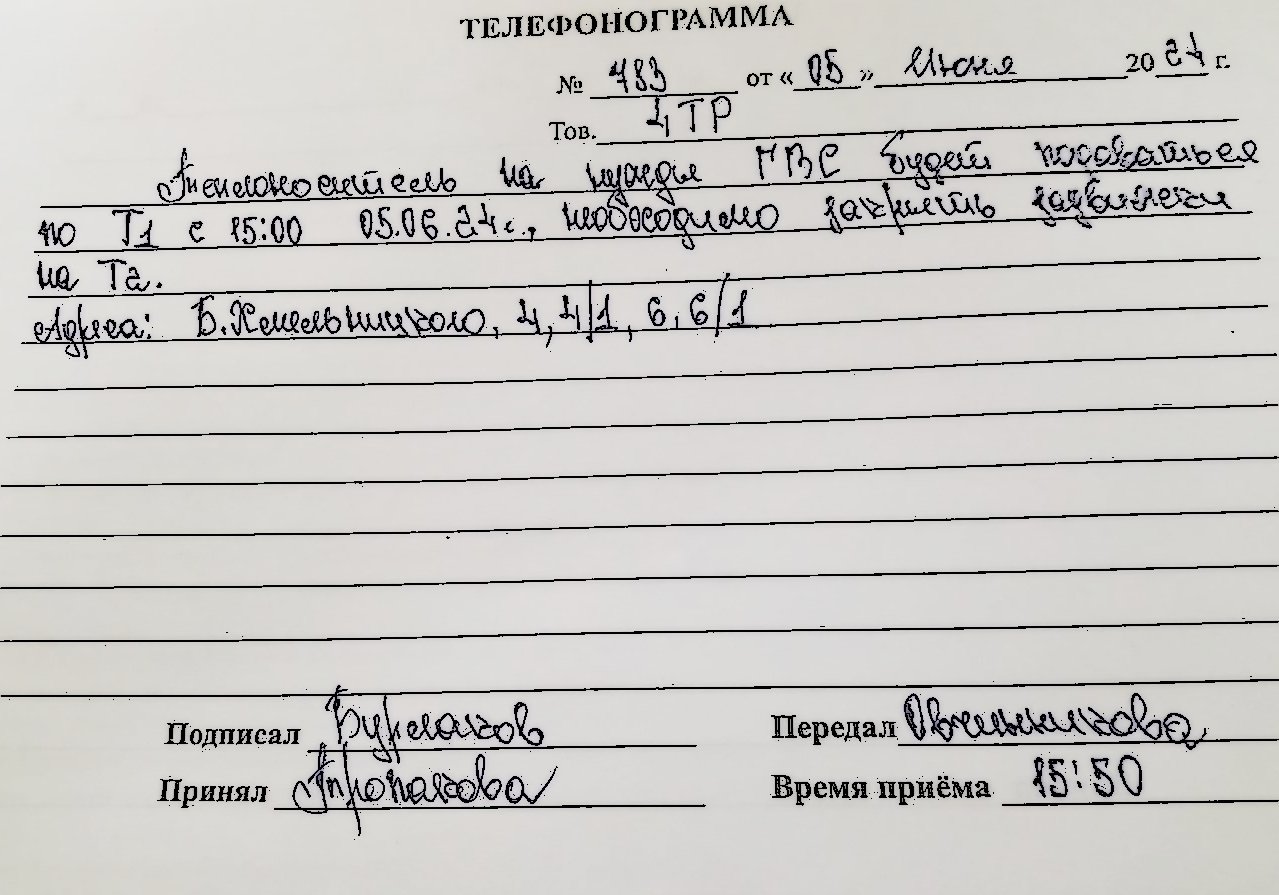 ТЕЛЕФОНОГРАММА
№ 783 от «05» Июня 2024 г.
Тов. 4ТР
Теплоноситель на нужды ГВС будет подаваться
по Т1 с 15:00 05.06.24г., необходимо закрыть задвижки
на Т2.
Адреса: Б.Хмельницкого, 4, 4/1, 6, 6/1
Подписал Бурлаков Передал Овчинникова
Принял Время приёма 15:50